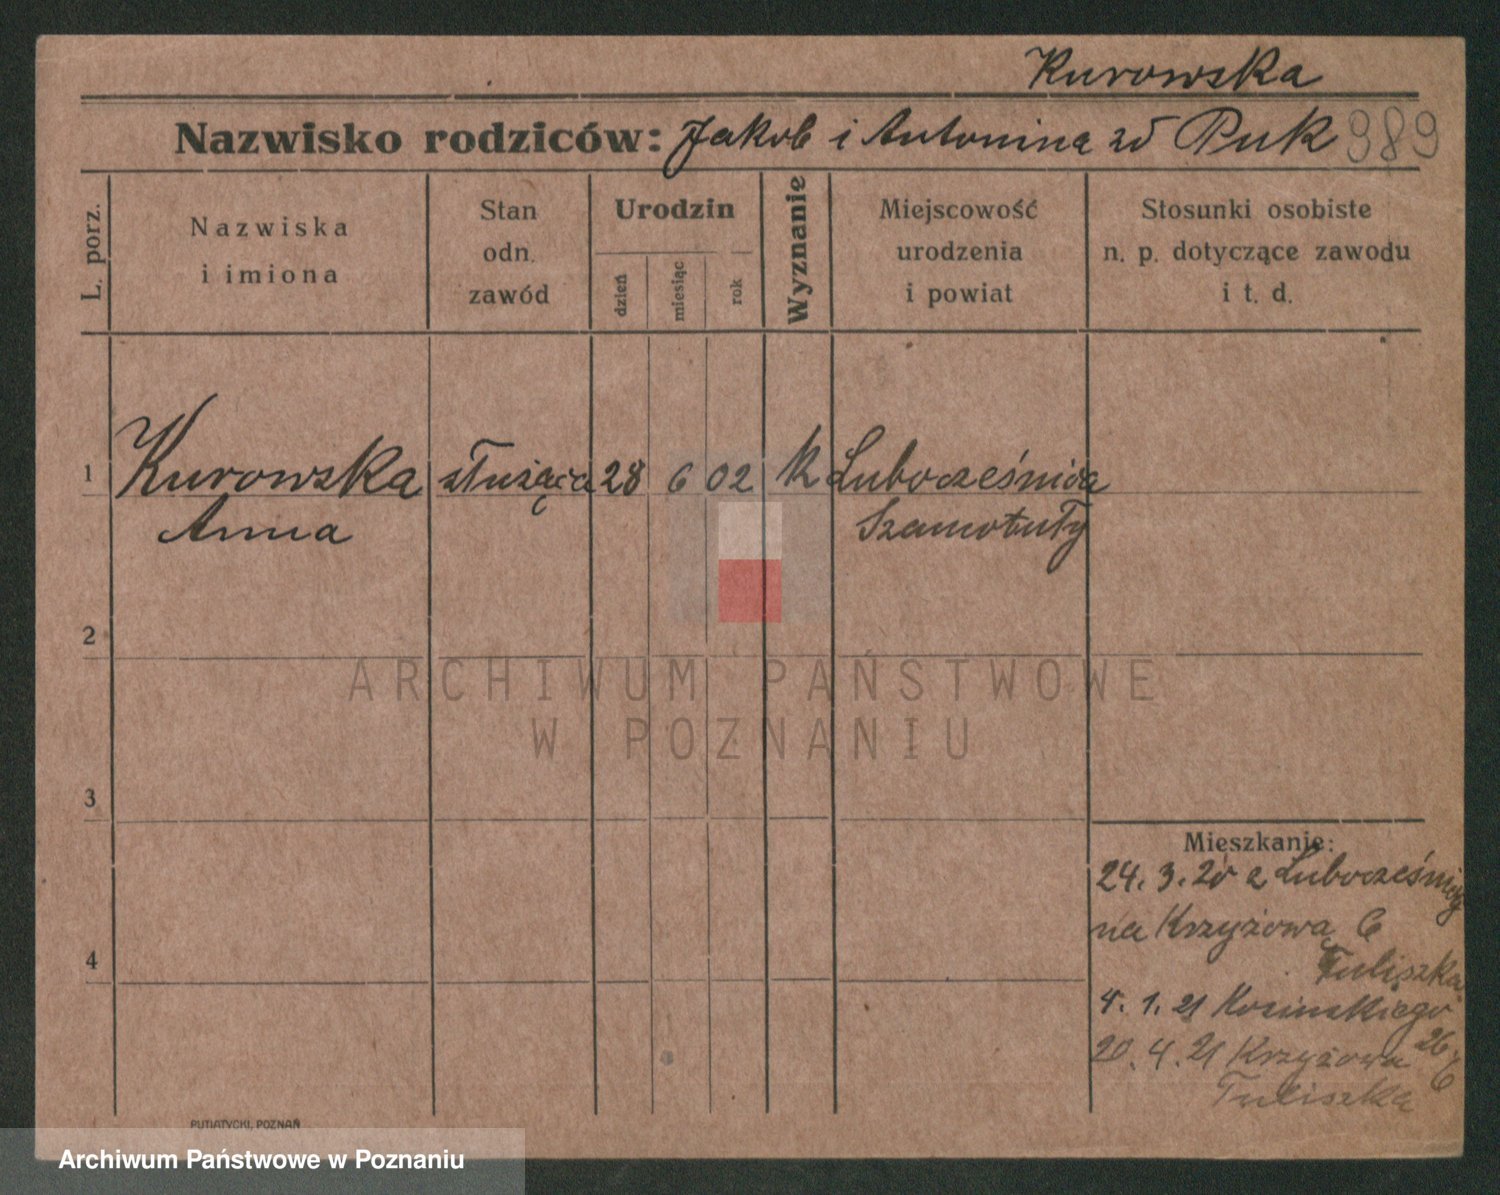 Kurowska
Nazwisko rodziców: Jakob i Antonina zd Puk 989
L. porz.
Nazwiska
i imiona
Stan
odn.
zawód
Urodzin
dzień
miesiąc
rok
Wyznanie
Miejscowość
urodzenia
i powiat
Stosunki osobiste
n. p. dotyczące zawodu
i t. d.
1 Kurowska służąca 28 6 02 k Lubocześnica
Anna Szamotuły
2
3
4
Mieszkanie:
24. 3. 20 z Lubocześnicy
na Krzyżowa 6
Tuliszka
1. 21 Kosinskiego 26
20. 4. 21 Krzyżowa 6
Tuliszka
PUTIATYCKI, POZNAŃ
ARCHIWUM PAŃSTWOWE
W POZNANIU
Archiwum Państwowe w Poznaniu